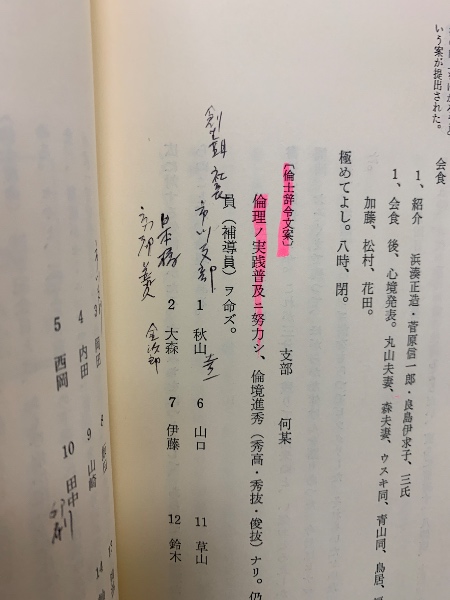 いう案が提出された。
会食
1、紹介 浜湊正造・菅原信一郎・良島伊求子、三氏
1、会食 後、心境発表。丸山夫妻、森夫妻、ウスキ同、青山同、鳥居、
加藤、松村、花田。
極めてよし。八時、閉。
〔倫士辞令文案〕
支部 何某
倫理ノ実践普及ニ努力シ、倫境進秀（秀高・秀抜・俊抜）ナリ。仍
員（補導員）ヲ命ズ。
市川支部
1 秋山 6 山口 11 草山
日本橋
2 大森 7 伊藤 12 鈴木
金次郎
4 内田 9 山崎 14
5 西岡 10 田中